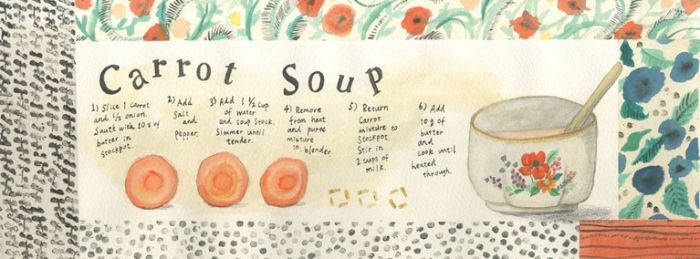 Carrot Soup
1) Slice 1 Carrot
and 1/2 onion.
Sauté with 10 g of
butter in
stockpot.
2) Add
Salt
and
Pepper.
3) Add 1 1/2 Cup
of water
and soup stock.
Simmer until
tender.
4) Remove
from heat
and puree
mixture
in blender
5) Return
Carrot
mixture to
Stockpot.
Stir in
2 cups of
milk.
6) Add
10 g of
butter
and
cook until
heated
through.